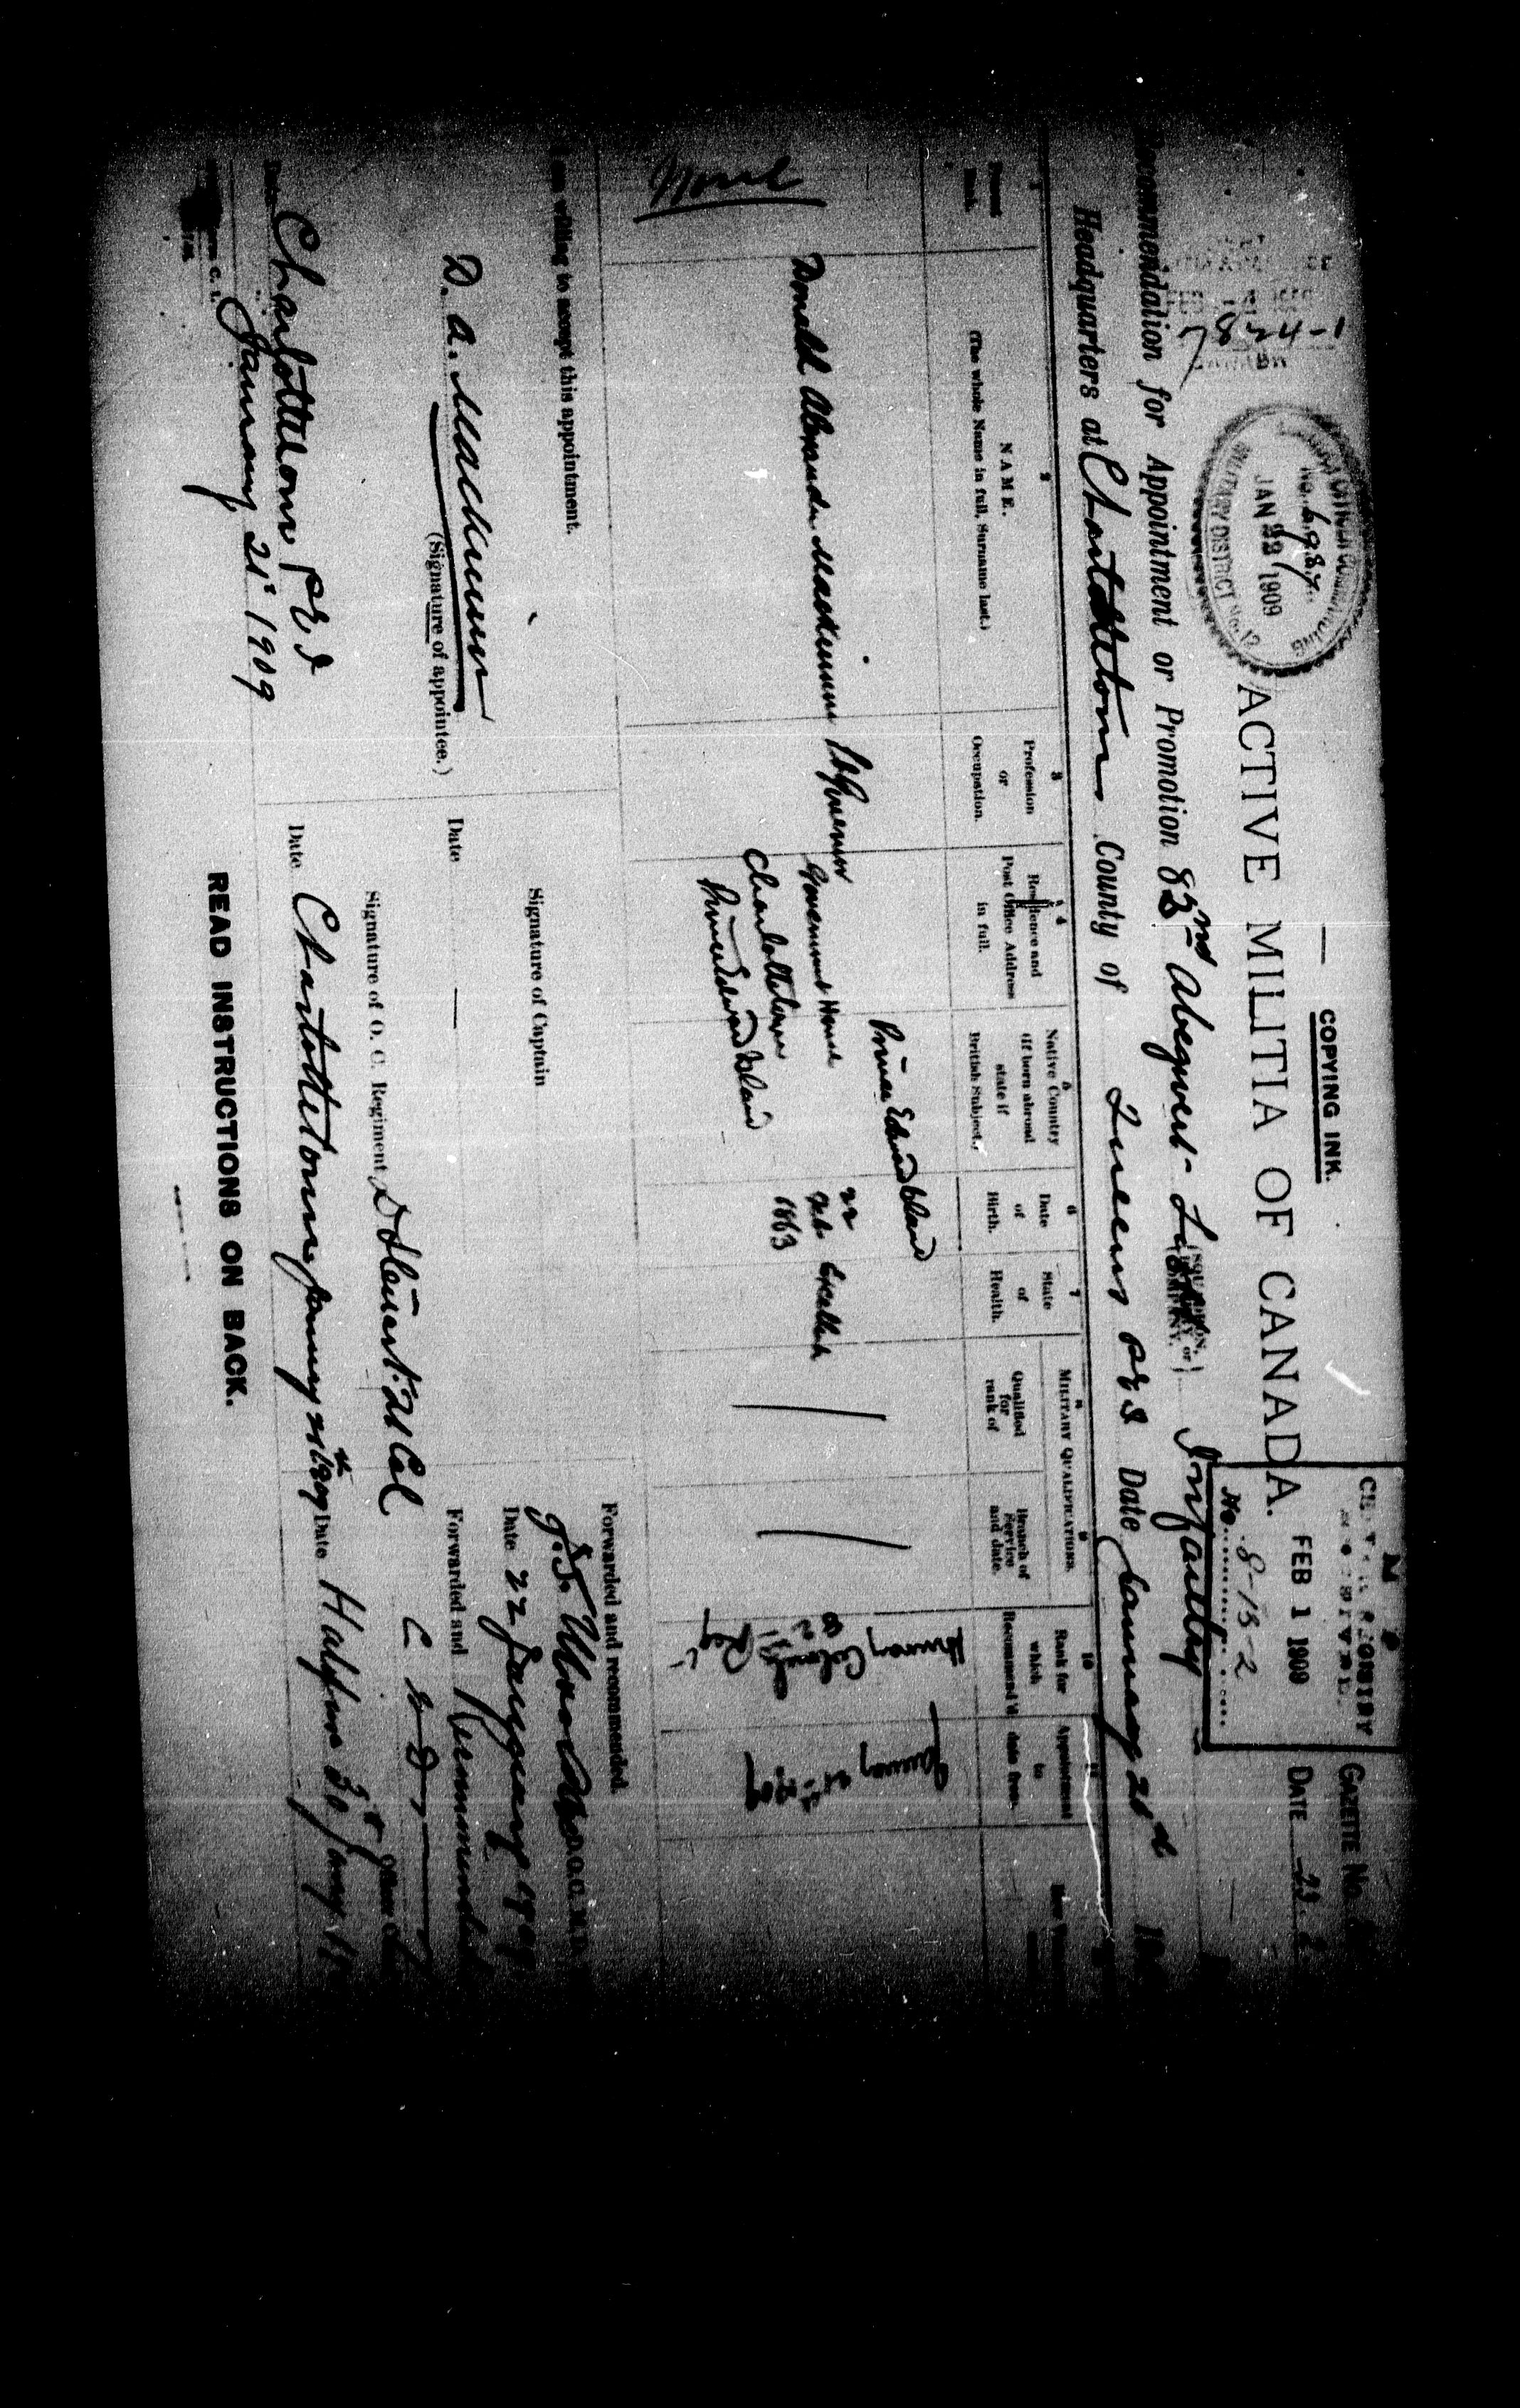 COPYING INK.
ACTIVE MILITIA OF CANADA.
No. 6987
JAN 23 1909
MILITARY DISTRICT No. 12
FEB 1 1909
No. 8-15-2
GAZETTE No.
DATE 22.
78 24-1
Recommendation for Appointment or Promotion 82nd Abegweit Light Infantry
Headquarters at Charlottetown County of Queens PEI Date January 21st
1 2 3 4 5 6 7 8 9 10 11
Present Rank.
NAME.
(The whole Name in full, Surname last.)
Profession or Occupation.
Residence and Post Office Address in full.
Native Country (if born abroad state if British Subject.)
Date of Birth.
State of Health.
MILITARY QUALIFICATIONS.
Qualified for rank of
Branch of Service and date.
Rank for which Recommend'd
Appointment to date from.
None
Donald Alexander Mackinnon
Lt Governor
Government House
Charlottetown
Prince Edward Island
Prince Edward Island
22
Feb
1863
Excellent
Honorary Colonel
82
Regt
January 21
I am willing to accept this appointment.
D. A. Mackinnon
(Signature of appointee.)
Charlottetown PEI
January 21st 1909
Signature of Captain
Date —
Signature of O. C. Regiment D Stewart Lt Col
Date Charlottetown January 21st 1909
Forwarded and recommended.
D.O.C. M.D.
Date 22 January 1909
Forwarded and Recommended
Date Halifax 30 Jany
READ INSTRUCTIONS ON BACK.